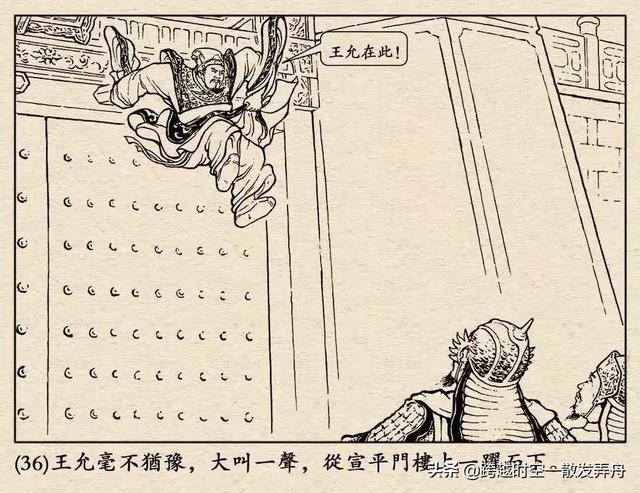 王允在此！
(36)王允毫不猶豫，大叫一聲，從宣平門樓上一躍而下
头条 @跨越时空一散发弄舟